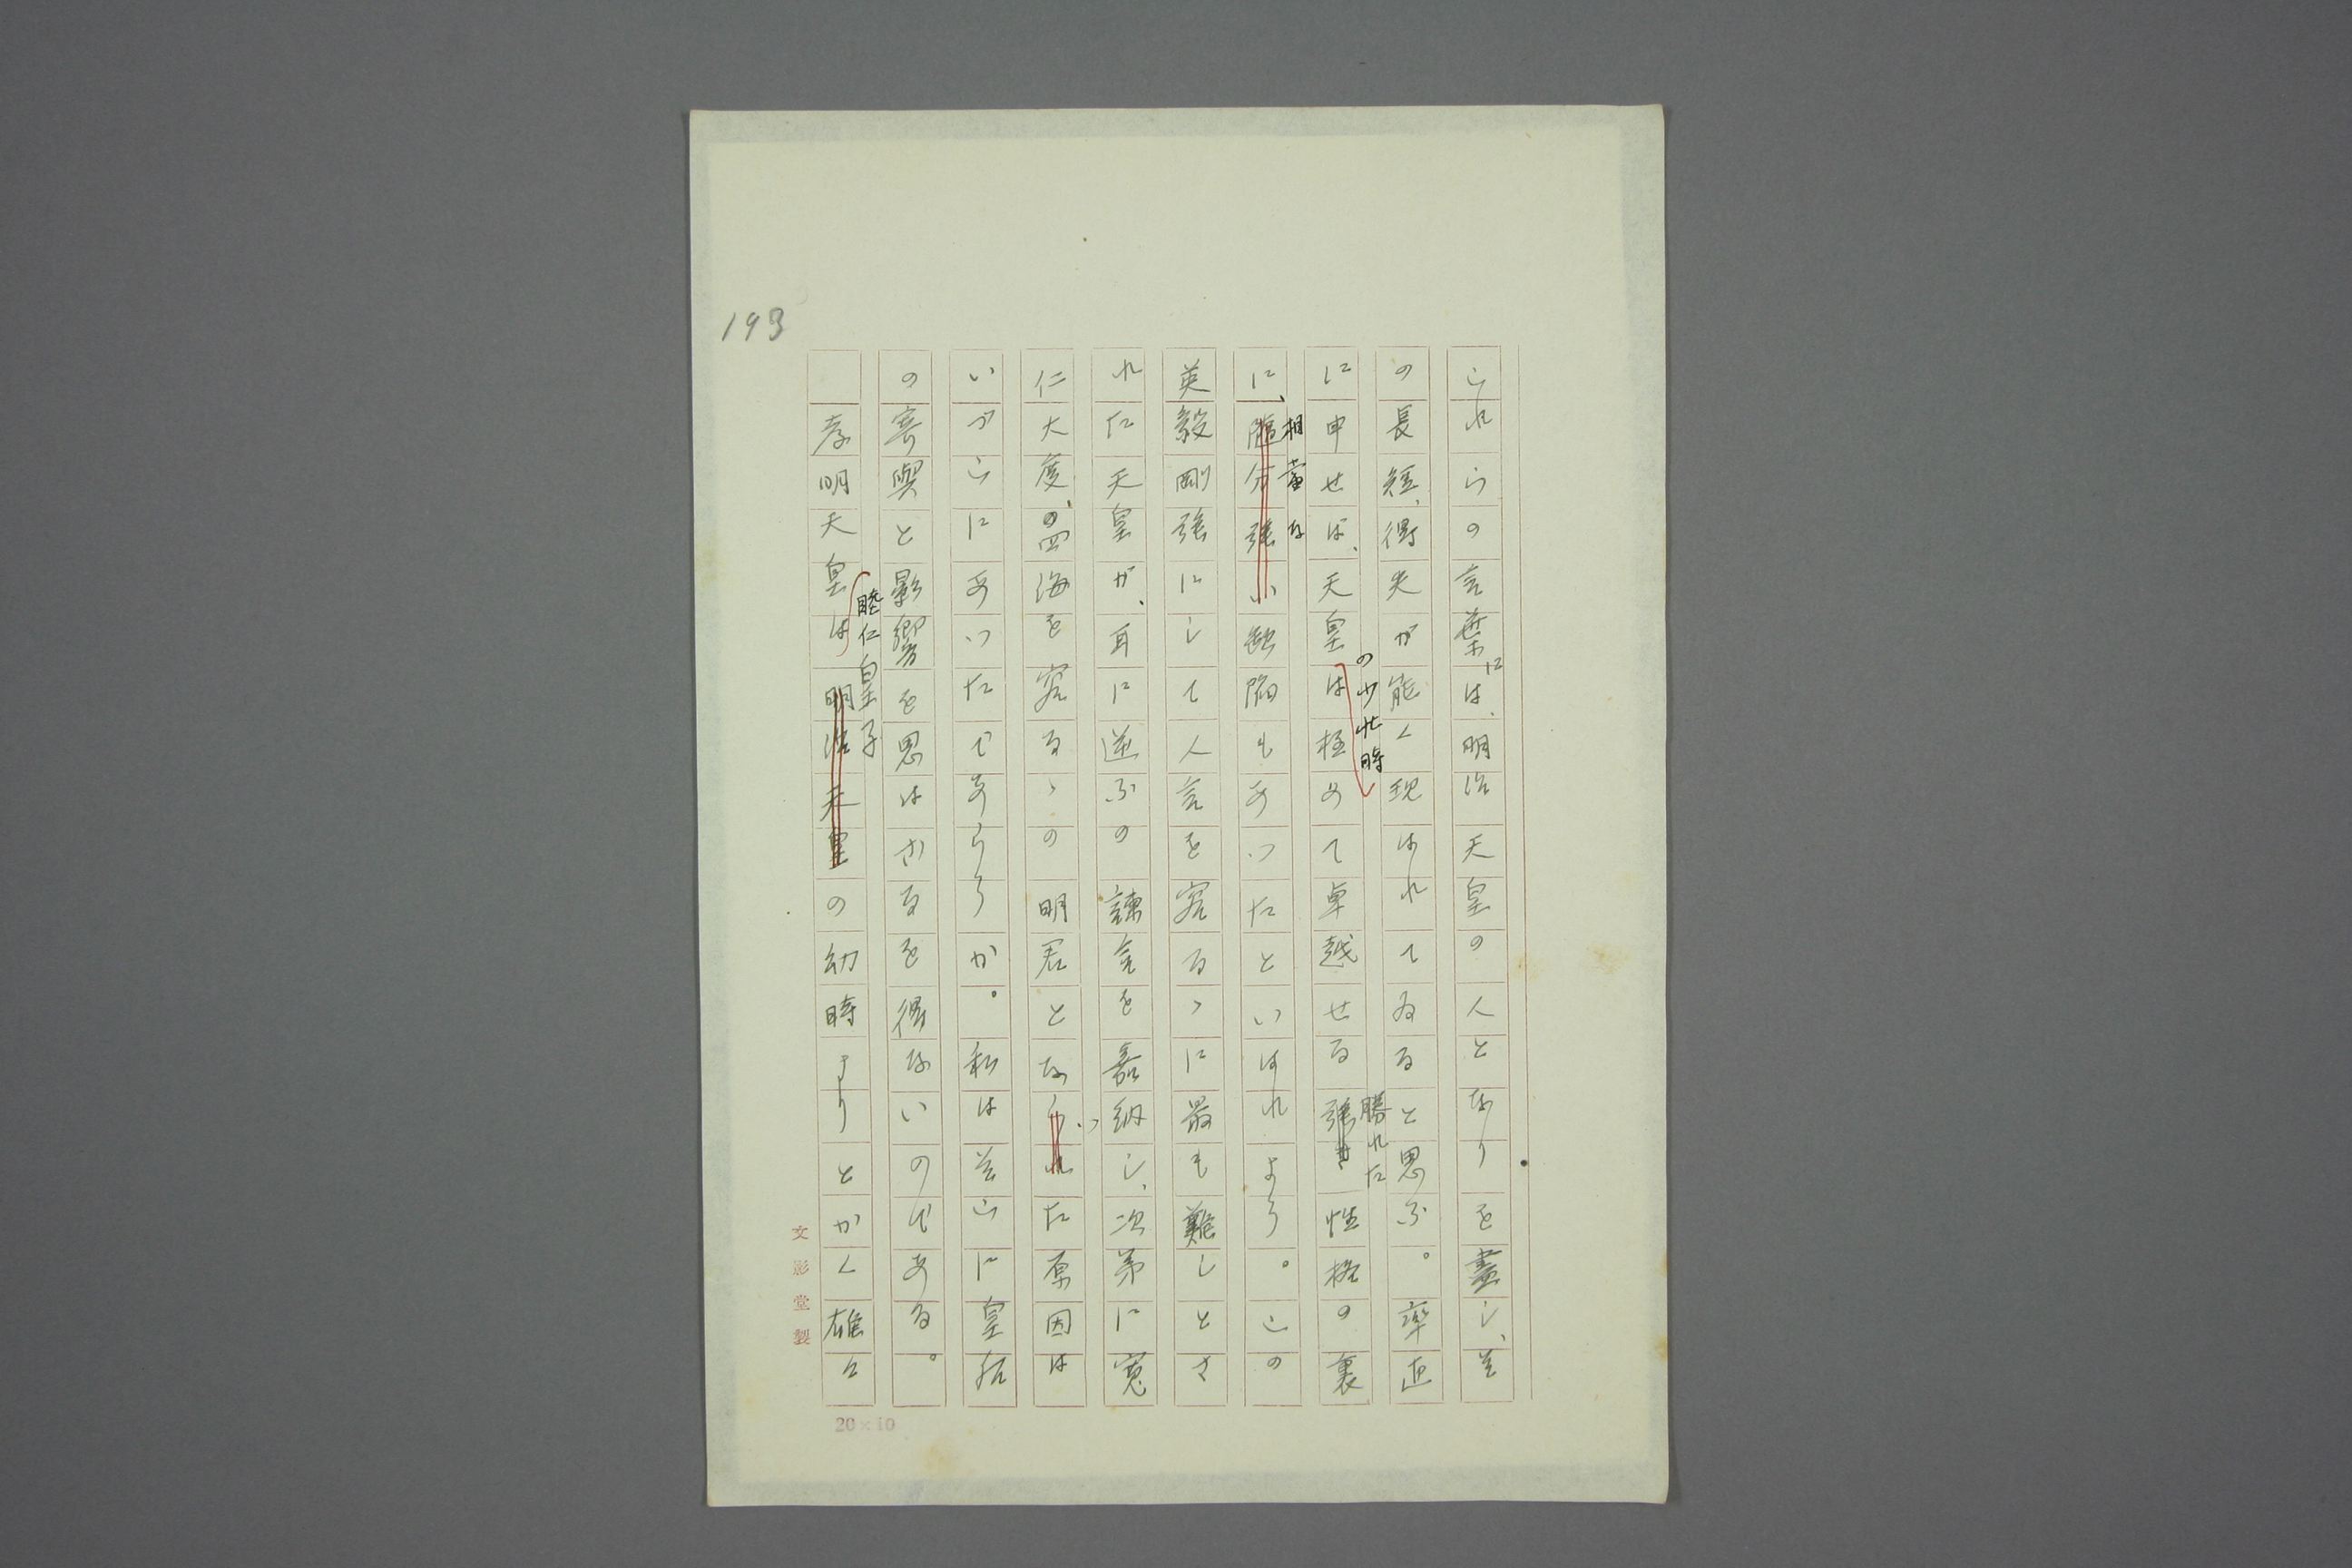 193
これらの言葉には、明治天皇の人となりを畫し、其
の長短、得失が能く現はれてゐると思ふ。卒直
に申せば、天皇の少壮時は極めて卓越せる強き勝れた性格の裏
に、随分強い相當な缺陥もあつたといはれよう。この
英毅剛強にして人言を容るゝに最も難しとさ
れた天皇が、耳に逆ふの諫言を嘉納し、次第に寛
仁大度、の四海を容るゝの明君となられつた原因は
いづこにあつたであらうか。私は其こに皇后
の寄與と影響を思はざるを得ないのである。
孝明天皇は睦仁皇子明治天皇の幼時よりとかく雄々
文影堂製
20×10